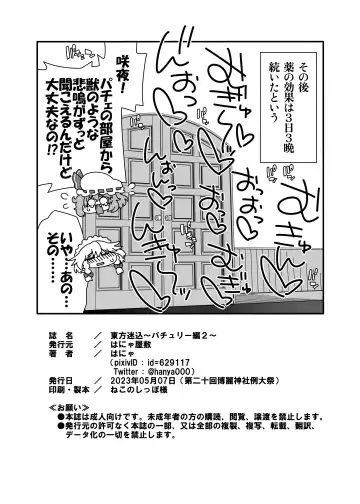 その後
薬の効果は３日３晩
続いたという
咲夜！
パチェの部屋から
獣のような
悲鳴がずっと
聞こえるんだけど
大丈夫なの!?
いや…あの…
その……
誌　名　／　東方迷込～パチュリー編２～
発行元　／　はにゃ屋敷
著　者　／　はにゃ
（pixivID : id=629117
Twitter : @hanya000）
発行日　／　2023年05月07日（第二十回博麗神社例大祭）
印刷・製本　／　ねこのしっぽ様
≪お願い≫
●本誌は成人向けです。未成年者の方の購読、閲覧、譲渡を禁止します。
●発行元の許可なく本誌の一部、又は全部の複製、複写、転載、翻訳、
データ化の一切を禁止します。